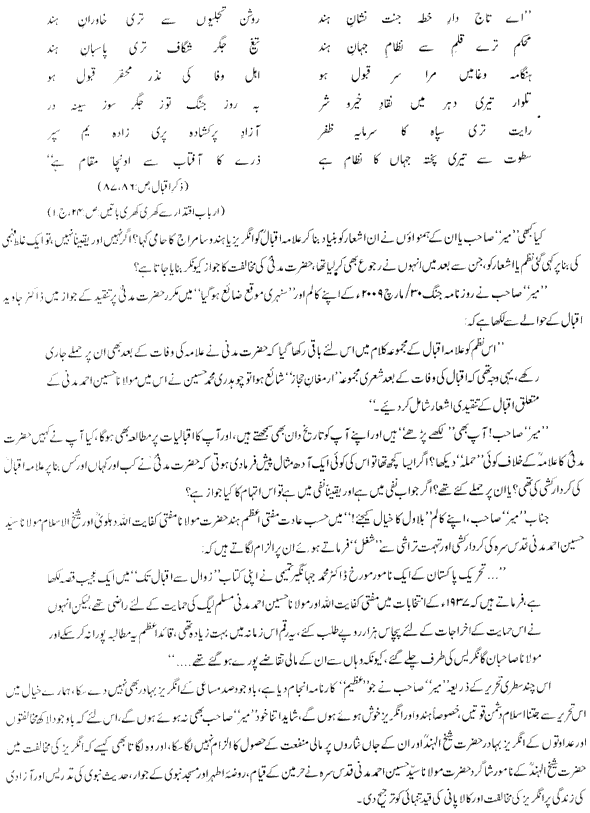 ”اے تاج دارِ خطہ جنت نشانِ ہند روشن تجلیوں سے تری خاورانِ ہند
محکم ترے قلم سے نظامِ جہانِ ہند تیغِ جگر شگاف تری پاسبانِ ہند
ہنگامہ وغا میں مرا سر قبول ہو اہلِ وفا کی نذرِ محقر قبول ہو
تلوار تیری دہر میں نقادِ خیر و شر بہ روز جنگ توز جگر سوز سینہ در
رایت تری سپاہ کا سرمایہ ظفر آزادہ پرکشادہ پری زادہ یم سپر
سطوت سے تیری پختہ جہاں کا نظام ہے ذرے کا آفتاب سے اونچا مقام ہے“
(ذکر اقبال ص:۸۶، ۸۷)
(اربابِ اقتدار سے کھری کھری باتیں:ص:۲۴، ج۱)
کیا کبھی ”میر“ صاحب یا ان کے ہمنواؤں نے ان اشعار کو بنیاد بنا کر علامہ اقبالؒ کو انگریز یا ہندو سامراج کا حامی کہا؟ اگر نہیں اور یقیناً نہیں، تو ایک غلط فہمی
کی بنا پر کہی گئی نظم یا اشعار کو، جن سے بعد میں انہوں نے رجوع بھی کر لیا تھا، حضرت مدنیؒ کی مخالفت کا جواز کیونکر بنایا جاتا ہے؟
”میر“ صاحب نے روزنامہ جنگ ۳۰/مارچ ۲۰۰۹ء کے اپنے کالم اور ”سنہری موقع ضائع ہوگیا“ میں مکرر حضرت مدنیؒ پر تنقید کے جواز میں ڈاکٹر جاوید
اقبال کے حوالے سے لکھا ہے کہ:
”اس نظم کو علامہ اقبال کے مجموعہ کلام میں اس لئے باقی رکھا گیا کہ حضرت مدنی نے علامہ کی وفات کے بعد بھی ان پر حملے جاری
رکھے، یہی وجہ تھی کہ اقبال کی وفات کے بعد شعری مجموعہ ”ارمغانِ حجاز“ شائع ہوا تو چوہدری محمد حسین نے اس میں مولانا حسین احمد مدنی کے
متعلق اقبال کے تنقیدی اشعار شامل کر دیئے۔“
”میر“ صاحب! آپ بھی ”لکھے پڑھے“ ہیں اور اپنے آپ کو تاریخ دان بھی سمجھتے ہیں، اور آپ کا اقبالیات پر مطالعہ بھی ہوگا، کیا آپ نے کہیں حضرت
مدنیؒ کا علامہ کے خلاف کوئی ”حملہ“ دیکھا؟ اگر ایسا کچھ تھا تو اس کی کوئی ایک آدھ مثال پیش فرما دی ہوتی کہ حضرت مدنیؒ نے کب اور کہاں اور کس بنا پر علامہ اقبالؒ
کی کردار کشی کی تھی؟ یا ان پر حملے کئے تھے؟ اگر جواب نفی میں ہے اور یقیناً نفی میں ہے تو اس اتہام کا کیا جواز ہے؟
جناب ”میر“ صاحب، اپنے کالم ”بلاول کا خیال کیجئے!“ میں حسبِ عادت مفتی اعظم ہند حضرت مولانا مفتی کفایت اللہ دہلویؒ اور شیخ الاسلام مولانا سید
حسین احمد مدنی قدس سرہ کی کردار کشی اور تہمت تراشی سے ”شغل“ فرماتے ہوئے ان پر الزام لگاتے ہیں کہ:
”... تحریکِ پاکستان کے ایک نامور مورخ ڈاکٹر محمد جہانگیر تمیمی نے اپنی کتاب ”زوال سے اقبال تک“ میں ایک عجیب قصہ لکھا
ہے، فرماتے ہیں کہ ۱۹۳۷ء کے انتخابات میں مفتی کفایت اللہ اور مولانا حسین احمد مدنی مسلم لیگ کی حمایت کے لئے راضی تھے، لیکن انہوں
نے اس حمایت کے اخراجات کے لئے پچاس ہزار روپے طلب کئے، یہ رقم اس زمانہ میں بہت زیادہ تھی، قائداعظم یہ مطالبہ پورا نہ کر سکے اور
مولانا صاحبان کانگریس کی طرف چلے گئے، کیونکہ وہاں سے ان کے مالی تقاضے پورے ہو گئے تھے....“
اس چند سطری تحریر کے ذریعہ ”میر“ صاحب نے جو ”عظیم“ کارنامہ انجام دیا ہے، باوجود صد مساعی کے انگریز بہادر بھی نہیں دے سکا، ہمارے خیال میں
اس تحریر سے جتنا اسلام دشمن قوتیں، خصوصاً ہندو اور انگریز خوش ہوئے ہوں گے، شاید اتنا خود ”میر“ صاحب بھی نہ ہوئے ہوں گے، اس لئے کہ باوجود لاکھ مخالفتوں
اور عداوتوں کے انگریز بہادر حضرت شیخ الہندؒ اور ان کے جاں نثاروں پر مالی منفعت کے حصول کا الزام نہیں لگا سکا، اور وہ لگاتا بھی کیسے کہ انگریز کی مخالفت میں
حضرت شیخ الہندؒ کے نامور شاگرد حضرت مولانا سید حسین احمد مدنی قدس سرہ نے حرمین کے قیام، روضۂ اطہر اور مسجد نبوی کے جوار، حدیث نبوی کی تدریس اور آزادی
کی زندگی پر انگریز کی مخالفت اور کالا پانی کی قید تنہائی کو ترجیح دی۔